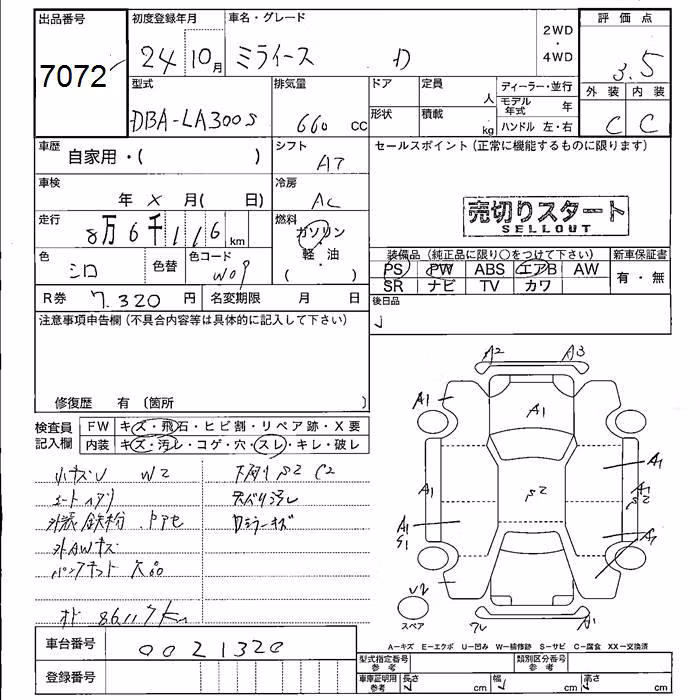 出品番号 初度登録年月 車名・グレード 2WD・4WD 評価点
7072 24 10月 ミライース D 3.5
型式 排気量 ドア 定員 人 ディーラー・並行 外装 内装
DBA-LA300S 660 CC 形状 積載 kg モデル年式 年 C C
ハンドル 左・右
車歴 自家用・( ) シフト AT セールスポイント(正常に機能するものに限ります)
車検 年 X 月( 日) 冷房 AC
売切りスタート
SELLOUT
走行 8万6千116km 燃料 ガソリン・軽・油 ( )
装備品(純正品に限り○をつけて下さい) 新車保証書
色 シロ 色替 色コード W09
PS PW ABS エアB AW 有・無
SR ナビ TV カワ
R券 7.320円 名変期限 月 日
後日品
注意事項申告欄(不具合内容等は具体的に記入して下さい)
修復歴 有(箇所 )
A2 A3
A1 A1 A1
検査員記入欄 FW キズ・飛石・ヒビ割・リペア跡・X要
内装 キズ・汚レ・コゲ・穴・スレ・キレ・破レ
A1 S2 A1
A1 S2
小キズU W2 下廻りS2 C2
外装鉄粉
A1 S1
外AWキズ
パンクキット欠品
U2
スペア
86117km
車台番号 0021320
A−キズ E−エクボ U−凹み W−補修跡 S−サビ C−腐食 XX−交換済
型式指定番号 参考 類別区分番号 参考
登録番号
車庫証明用 参考 長さ cm 幅 cm 高さ cm